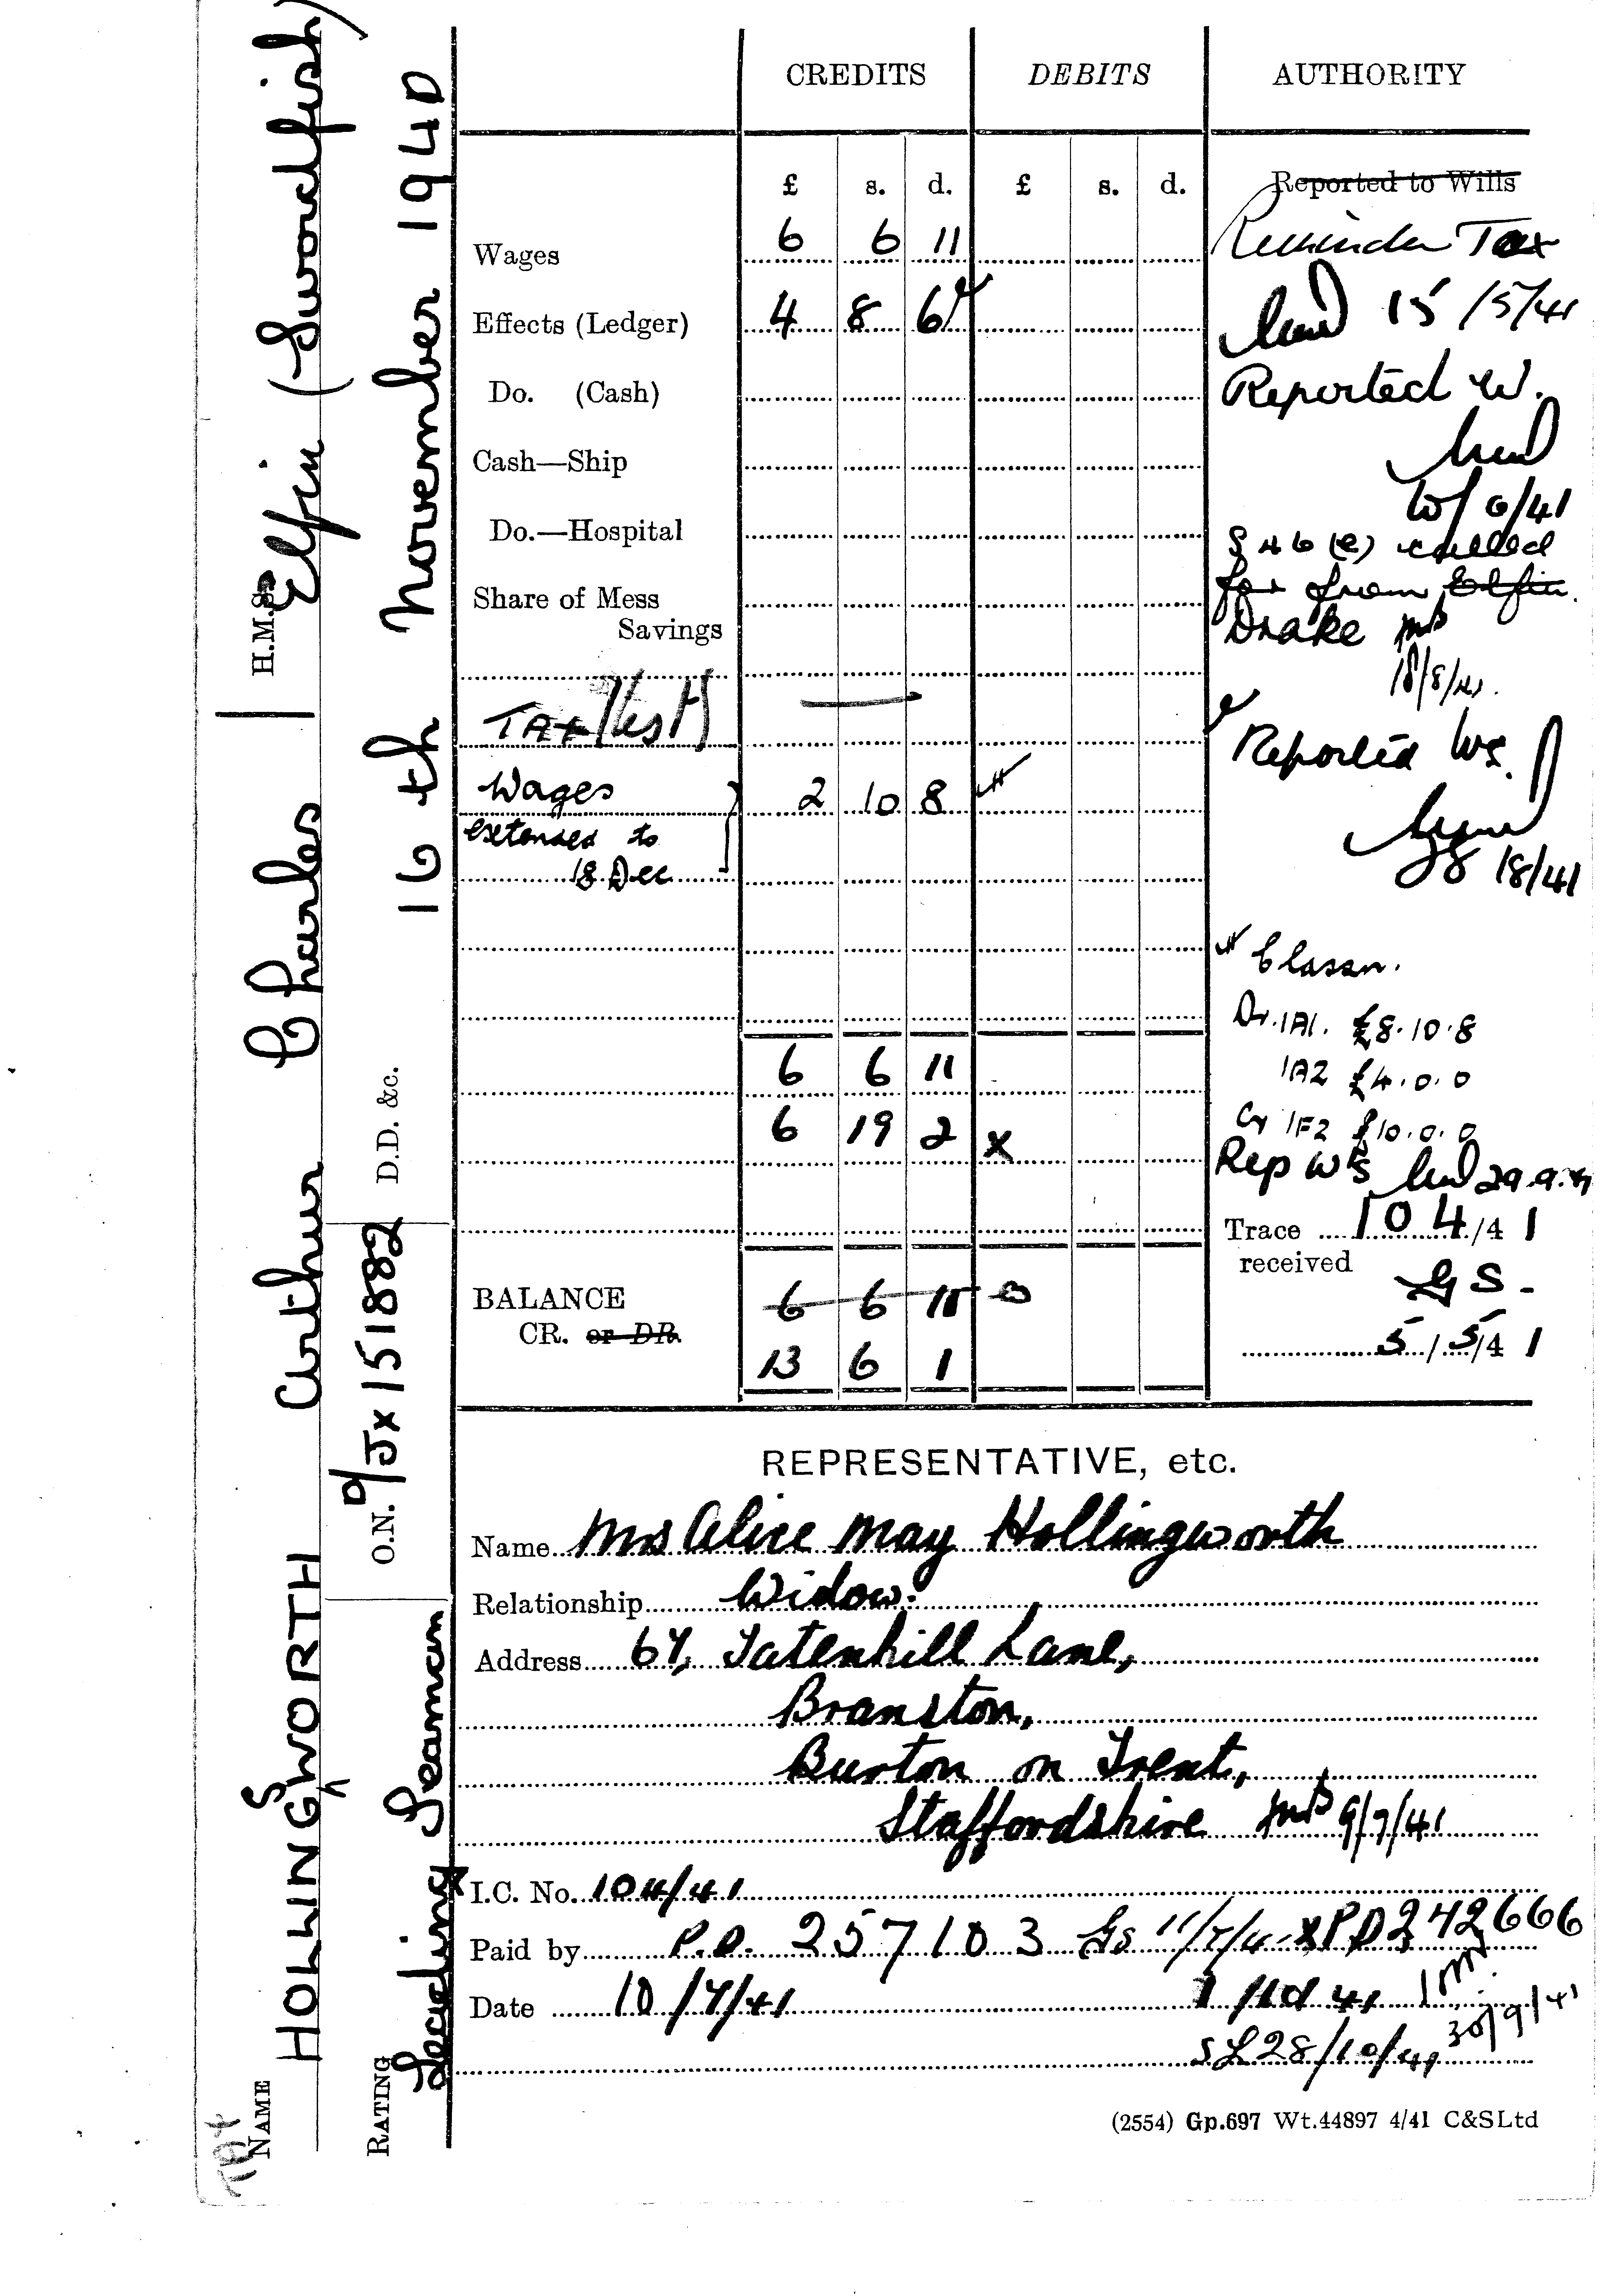 NAME HOLLINGSWORTH Arthur Charles H.M.S. Elfin (Swordfish)
RATING Leading Seaman O.N. D/JX 151882 D.D. &c. 16th November 1940
CREDITS DEBITS AUTHORITY
£ s. d. £ s. d. Reported to Wills
Wages 6 6 11 Reminder Tax
Effects (Ledger) 4 8 6 15/5/41
Do. (Cash) Reported W.
Cash—Ship
/6/41
Do.—Hospital
S 46 (e) called
Share of Mess for from Elfin.
Savings Drake
18/8/41.
TAX
Reported Ws.
Wages 2 10 8
extended to
18 Dec
18/41
Classn.
Dr. 1A1. £8.10.8
6 6 11 1A2 £4.0.0
6 19 2 x Cr 1F2 £10.0.0
Rep W's 29.9.41
Trace 104/41
received GS.
BALANCE 6 6 11
CR. or DR. 5/5/41
13 6 1
REPRESENTATIVE, etc.
Name Mrs Alice May Hollingworth
Relationship Widow.
Address 67, Tatenhill Lane,
Branston,
Burton on Trent,
Staffordshire 9/9/41
I.C. No. 104/41
Paid by P.O. 257103 Gs 11/7/41 x PD 242666
Date 10/7/41 1/10/41
30/9/41
SL 28/10/41
(2554) Gp.697 Wt.44897 4/41 C&SLtd